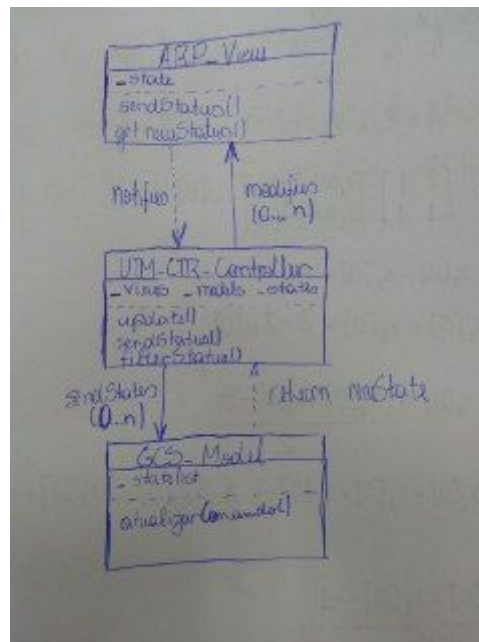 ARP_View
_state
sendStatus()
get newStatus()
notifies
modifies
(0...n)
UTM-CTR-Controller
_views _models _states
update()
sendStatus()
filterStatus()
sendStates
(0..n)
return newState
GCS_Model
atualizarComando()